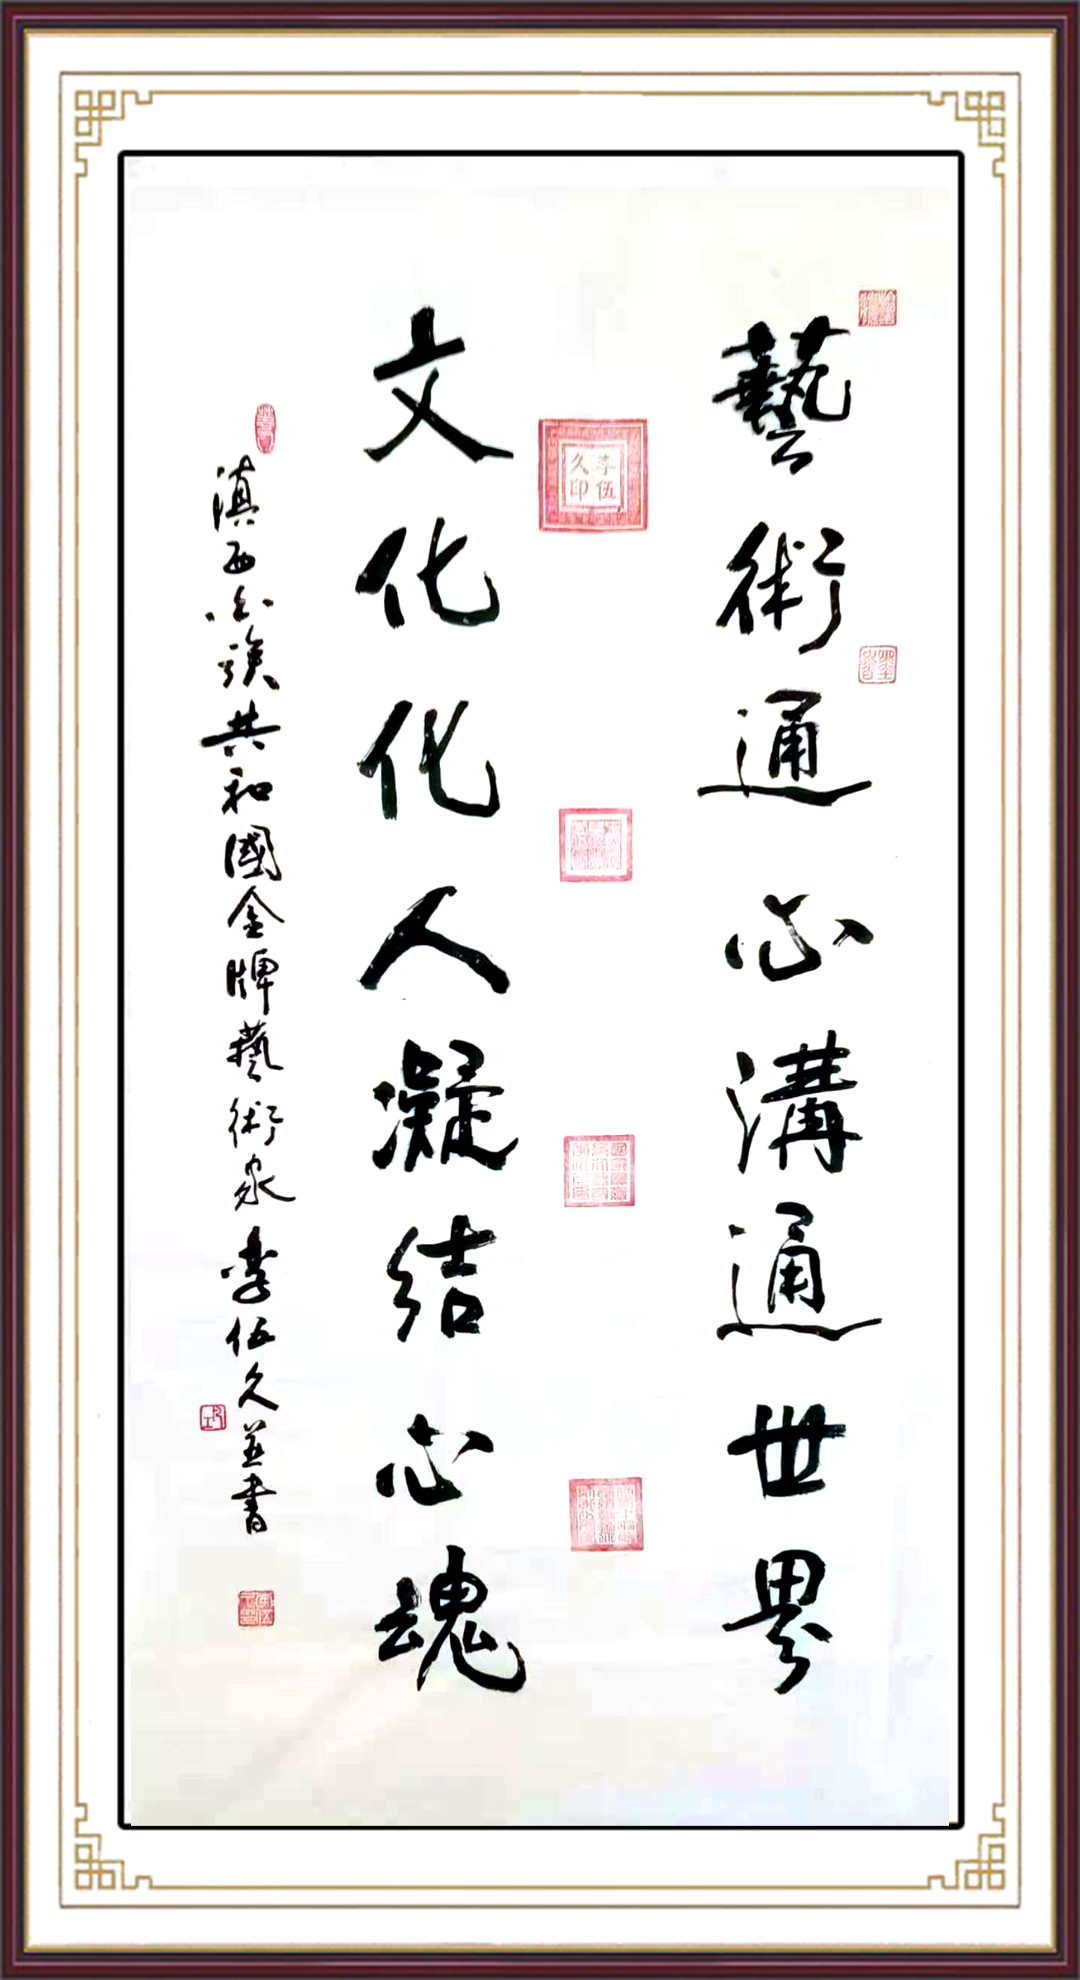 藝術通心溝通世界
李伍久印
文化化人凝結心魂
滇西族共和國金牌藝術家李伍久並書